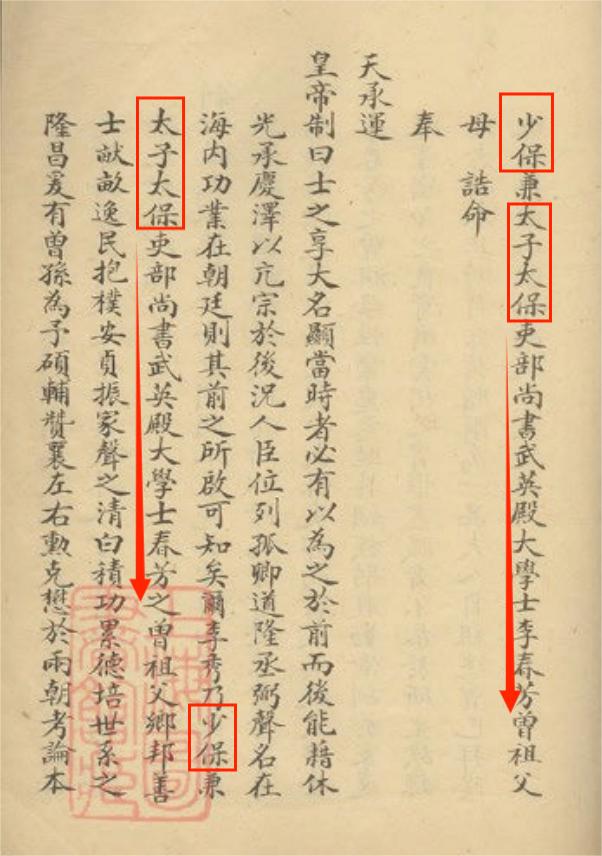 少保兼太子太保吏部尚書武英殿大學士李春芳曾祖父
母 誥命
奉
天承運
皇帝制曰士之享大名顯當時者必有以為之於前而後能藉休
光承慶澤以亢宗於後況人臣位列孤卿道隆丞弼聲名在
海内功業在朝廷則其前之所啟可知矣爾李秀乃少保兼
太子太保吏部尚書武英殿大學士春芳之曾祖父鄉邦善
士猷畝逸民抱樸安貞振家聲之清白積功累德培世系之
隆昌爰有曾孫為予碩輔贊襄左右勳克懋於兩朝考論本